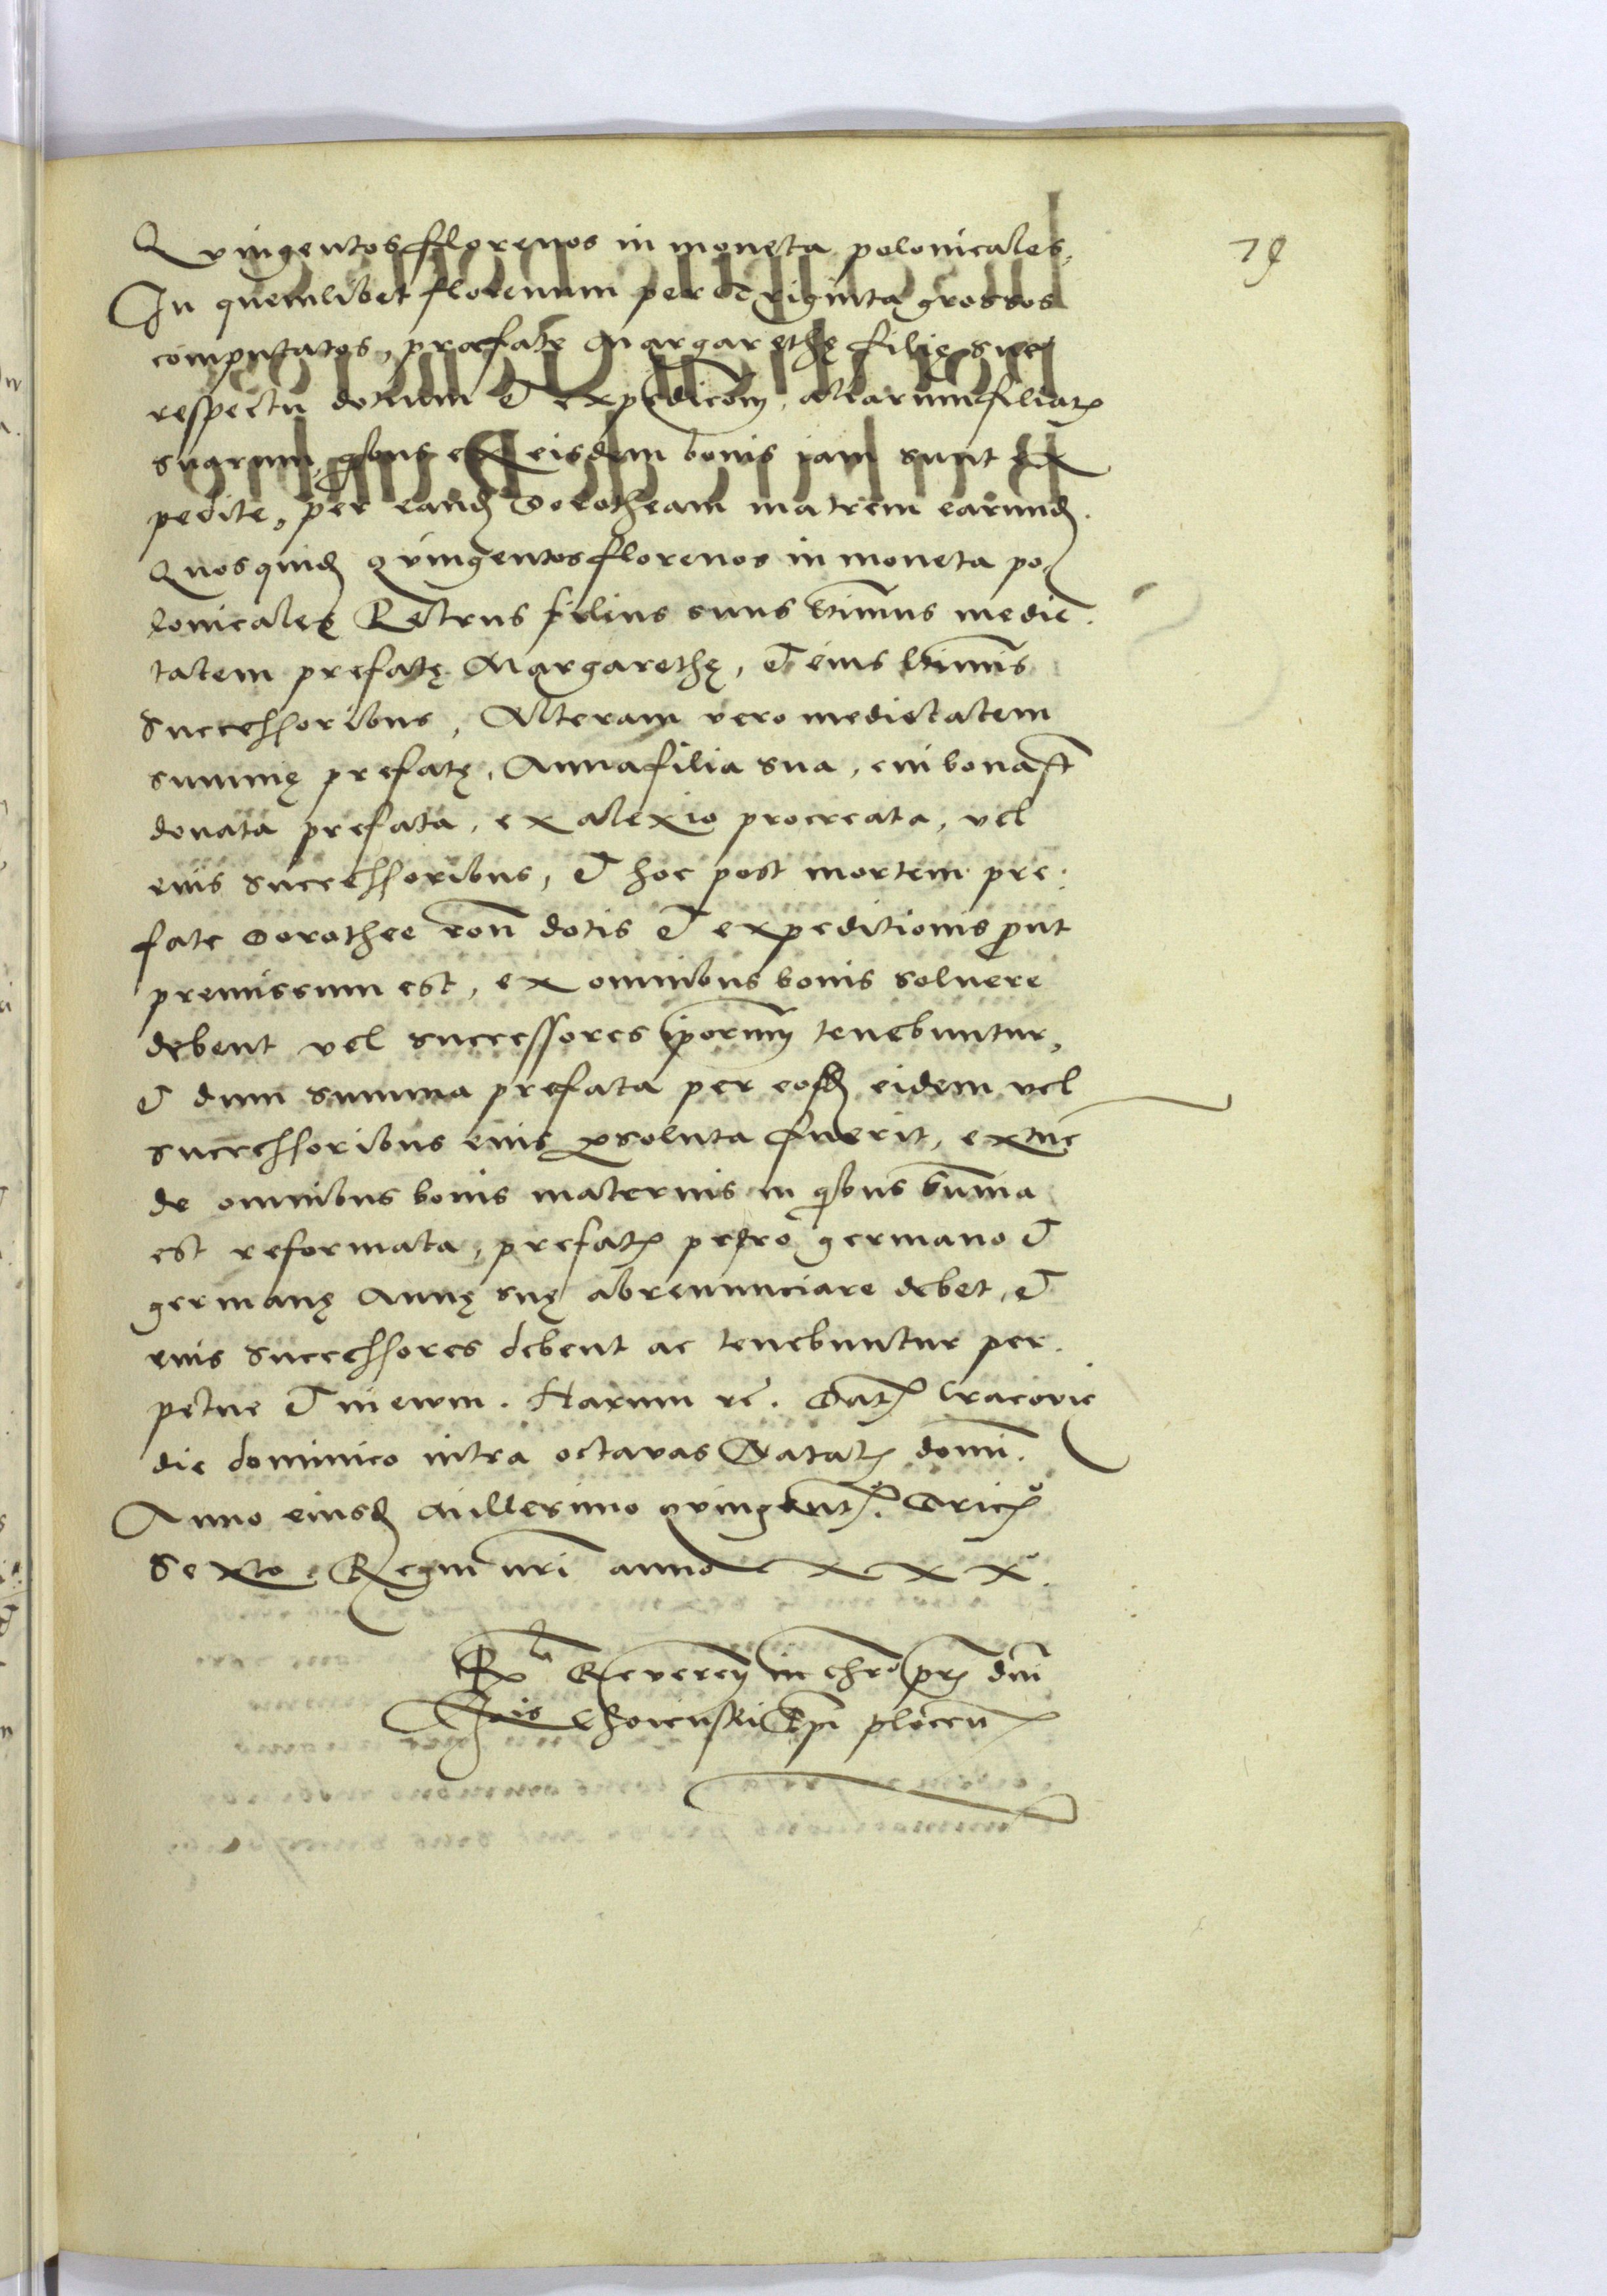 79
Quingentos florenos in moneta polonicales,
In quemlibet florenum per Triginta grossos
computatos, prefate Margarethę filię sue
respectu dotium et expedicoñ, aliarum filiarꝝ
suarum, qbus ex eisdem bonis iam sunt ex
pedite, per eandꝫ Dorotheam matrem earundꝫ.
Quosquidꝫ quingentos florenos in moneta po
lonicales Petrus filius suus vltimus medie
tatem prefatę Margarethę, et eius ltimis
Successoribus, Alteram vero medietatem
summę prefatę, Anna filia sua, cui bona st
donata prefata, ex Alexio procreata, vel
eius successoribus, et hoc post mortem pre
fate Dorothee roñ dotis et expeditionis prout
premissum est, ex omnibus bonis soluere
debent vel successores iporum tenebuntur,
et dum summa prefata per eosdꝫ eidem vel
successoribus eius psoluta fuerit, extũc
de omnibus bonis maternis in qbus summa
est reformata, prefatꝫ petro germano et
germanę Annę suę abrenunciare debet, et
eius successores debent ac tenebuntur per
petue et in ewm. Harum rc̃. Datꝫ Cracovie
die dominico intra octavas Natatꝫ domĩ.
Anno eiusdꝫ Millesimo quingentꝫº. Tricꝫº
Sexto. Regni nri anno XXXº.
Rº Reverenꝫ in chro prꝫ dñi
Joĩs Choienski Epĩ plocen̄